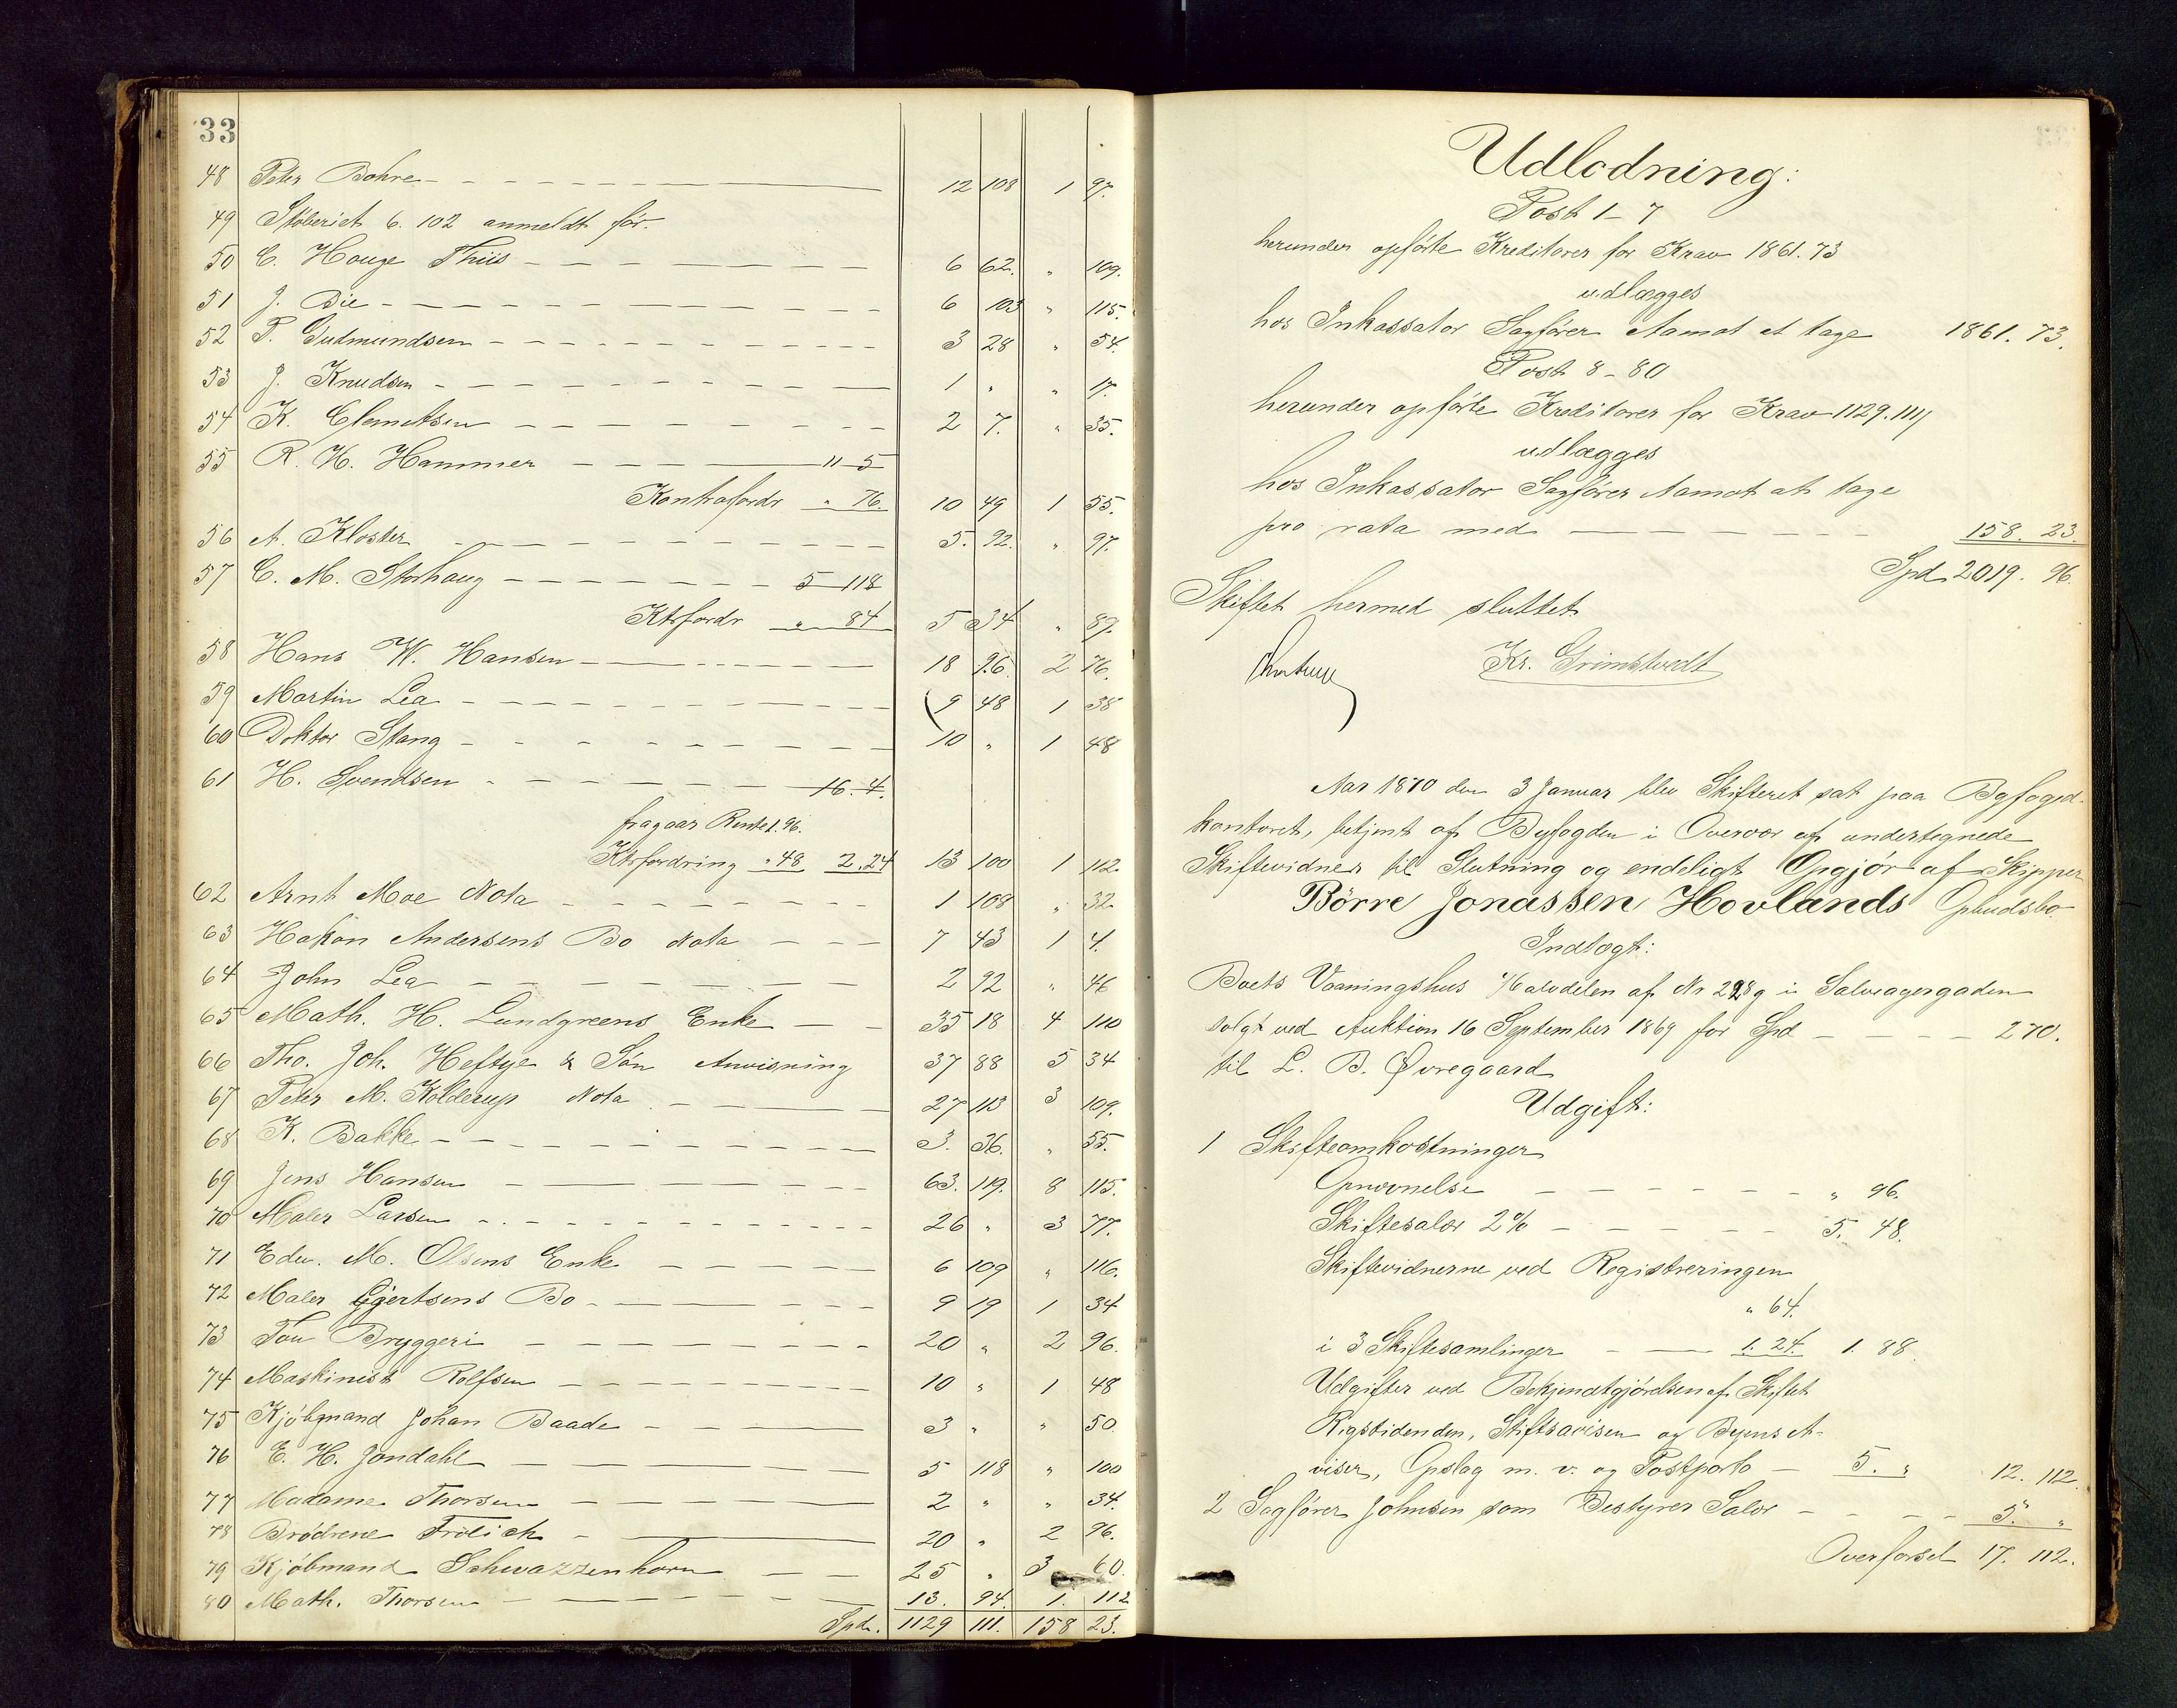 33
48 Peter Bohre 12 108 1 97.
49 Stöberiet 6. 102 anmeldt för.
50 C. Houge Thiis 6 62. " 109.
51 J. Bie 6 103 " 115.
52 P. Gudmundsen 3 28 " 54.
53 J. Knudsen 1 " " 17.
54 K. Clemetsen 2 7. " 35.
55 R. H. Hammer 11 5
Kontrafordr " 76. 10 49 1 55.
56 A. Kloster 5. 92. " 97.
57 C. M. Storhoug 5 118
Ktrfordr " 84 5 34 " 89.
58 Hans W. Hansen 18 96. 2 76.
59 Martin Lea 9 48 1 38
60 Doktor Stang 10 " 1 48
61 H. Svendsen 16. 4.
fragaar Rente 1. 96.
Ktrfordring " 48 2. 24 13 100 1 112.
62 Arnt Moe Nota 1 108 " 32.
63 Hakon Andersens Bo Nota 7 43 1 4.
64 John Lea 2 92 " 46
65 Math. H. Lundgreens Enke 35 18 4 110
66 Tho. Joh. Heftye & Sön Anvisning 37 88 5 34
67 Peter M. Kolderup Nota 27 113 3 109.
68 K. Bakke 3. 36. " 55.
69 Jens Hansen 63. 119. 8 115.
70 Maler Larsen 26 " 3 77.
71 Edw. M. Olsens Enke 6 109 " 116.
72 Maler Gjertsens Bo 9 19 1 34
73 Tou Bryggeri 20 " 2 96.
74 Maskinist Rolfsen 10 " 1 48
75 Kjöbmand Johan Baade 3 " " 50
76 E. H. Jondahl 5 118 " 100
77 Madame Thorsen 2 " " 34.
78 Brödrene Frölich 20 " 2 96.
79 Kjöbmand Schwazzenhorn 25 " 3 60.
80 Math. Thorsen 13. 94. 1. 112
Spd. 1129 111. 158 23.
Udlodning:
Post 1 - 7
herunder opförte Kreditorer for Krav 1861. 73
udlægges
hos Inkassator Sagförer Aamot at tage 1861. 73.
Post 8 - 80
herunder opförte Kreditorer for Krav 1129. 111
udlægges
hos Inkassator Sagförer Aamot at tage
pro rata med 158. 23.
Spd 2019. 96.
Skiftet hermed sluttet
Kr. Grimstvedt
Aar 1870 den 3 Januar blev Skifteret sat paa Byfoged-
kontoret, betjent af Byfogden i Overvær af undertegnede
Skiftevidner til Slutning og endeligt Opgjör af Skipper
Börre Jonassen Hovlands Opbudsbo.
Indtægt:
Boets Vaaningshus Halvdelen af Nr 289 i Salvagergaden
solgt ved Auktion 16 September 1869 for Spd 270.
til L. B. Øvregaard
Udgift:
1 Skifteomkostninger
Opnævnelse " 96.
Skiftesalær 2% 5. 48.
Skiftevidnerne ved Registreringen
" 64.
i 3 Skiftesamlinger 1. 24. 1. 88.
Udgifter ved Bekjendtgjörelsen af Skiftet
Rigstidenden, Stiftsavisen og Byens A-
viser, Opslag m. v. og Postporto 5. " 12. 112.
2 Sagförer Johnsen som Bestyrer Salær 5. "
Overforsel 17. 112.